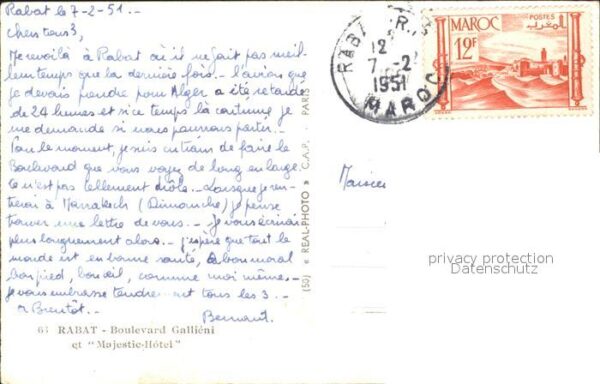 Rabat le 7-2-51.-
Chers tous 3,
Me revoilà à Rabat où il ne fait pas meil-
leur temps que la dernière fois.- L'avion que
je devais prendre pour Alger a été retardé
de 24 heures et si ce temps là continue je
me demande si nous pourrons partir.-
Pour le moment, je suis en train de faire le
Boulevard que vous voyez de long en large.
Ce n'est pas tellement drôle.- Lorsque je ren-
trerai à Marrakech (Dimanche) je pense
trouver une lettre de vous.- Je vous écrirai
plus longuement alors.- J'espère que tout le
monde est en bonne santé, a bon moral
bon pied, bon œil, comme moi même.-
Je vous embrasse tendrement tous les 3.-
A Bientôt.-
Bernard.
RABAT - Boulevard Galliéni
et "Majestic-Hôtel"
(50) « REAL-PHOTO » C.A.P. - PARIS
RABAT R.P.
12
7-2
1951
MAROC
POSTES
المغرب
MAROC
12F
privacy protection
Datenschutz